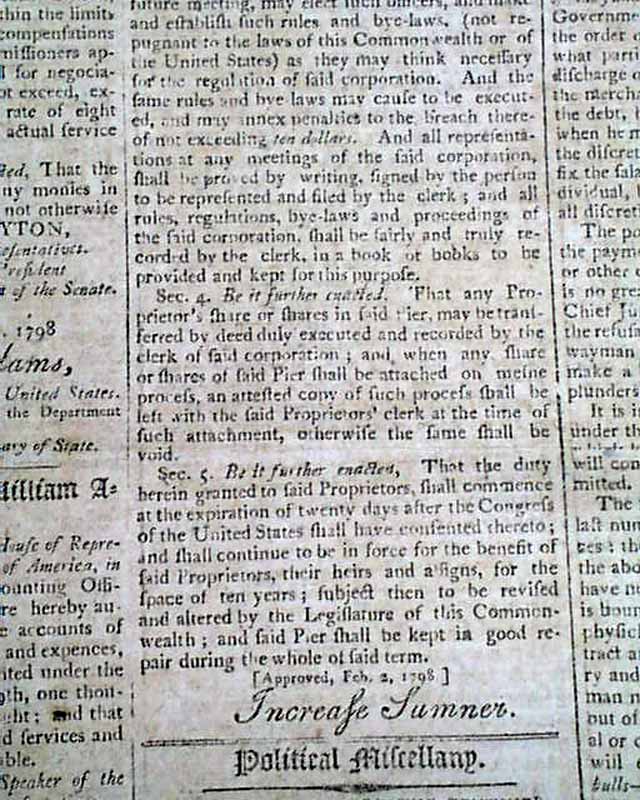 thin the limits
compensations
missioners ap-
l for negocia-
ot exceed, ex-
rate of eight
actual service
ted, That the
ny monies in
not otherwise
YTON,
esentatives.
President
of the Senate.
. 1798
dams,
United States.
the Department
ary of State.
William A-
House of Repre-
of America, in
ounting Offi-
re hereby au-
e accounts of
and expences,
ited under the
9th, one thou-
ght; and that
d services and
able.
Speaker of the
future meeting, may elect such officers, and make
and eſtabliſh ſuch rules and bye-laws, (not re-
pugnant to the laws of this Commonwealth or of
the United States) as they may think neceſſary
for the regulation of ſaid corporation. And the
ſame rules and bye laws may cauſe to be execut-
ed, and may annex penalties to the breach there-
of not exceeding ten dollars. And all repreſenta-
tions at any meetings of the ſaid corporation,
ſhall be proved by writing, ſigned by the perſon
to be repreſented and filed by the clerk; and all
rules, regulations, bye-laws and proceedings of
the ſaid corporation, ſhall be fairly and truly re-
corded by the clerk, in a book or books to be
provided and kept for this purpoſe.
Sec. 4. Be it further enacted. That any Pro-
prietor's ſhare or ſhares in ſaid Pier, may be tranſ-
ferred by deed duly executed and recorded by the
clerk of ſaid corporation; and, when any ſhare
or ſhares of ſaid Pier ſhall be attached on meſne
proceſs, an atteſted copy of ſuch proceſs ſhall be
left with the ſaid Proprietors' clerk at the time of
ſuch attachment, otherwiſe the ſame ſhall be
void.
Sec. 5. Be it further enacted, That the duty
herein granted to ſaid Proprietors, ſhall commence
at the expiration of twenty days after the Congreſs
of the United States ſhall have conſented thereto;
and ſhall continue to be in force for the benefit of
ſaid Proprietors, their heirs and aſſigns, for the
ſpace of ten years; ſubject then to be reviſed
and altered by the Legiſlature of this Common-
wealth; and ſaid Pier ſhall be kept in good re-
pair during the whole of ſaid term.
[Approved, Feb. 2, 1798]
Increaſe Sumner.
Political Miſcellany.
Governme
the order o
what parti
diſcharge o
the mercha
the debt,
when he m
the diſcret
fix the ſala
dividual,
all diſcret
The po
the payme
or other
is no grea
Chief Ju
the refuſa
wayman
make a
plunders
It is
under th
will con
mitted.
The
laſt nu
ces: th
the abo
have n
is boun
phyſici
tract a
ry and
man m
out of
al or c
will
bulls-